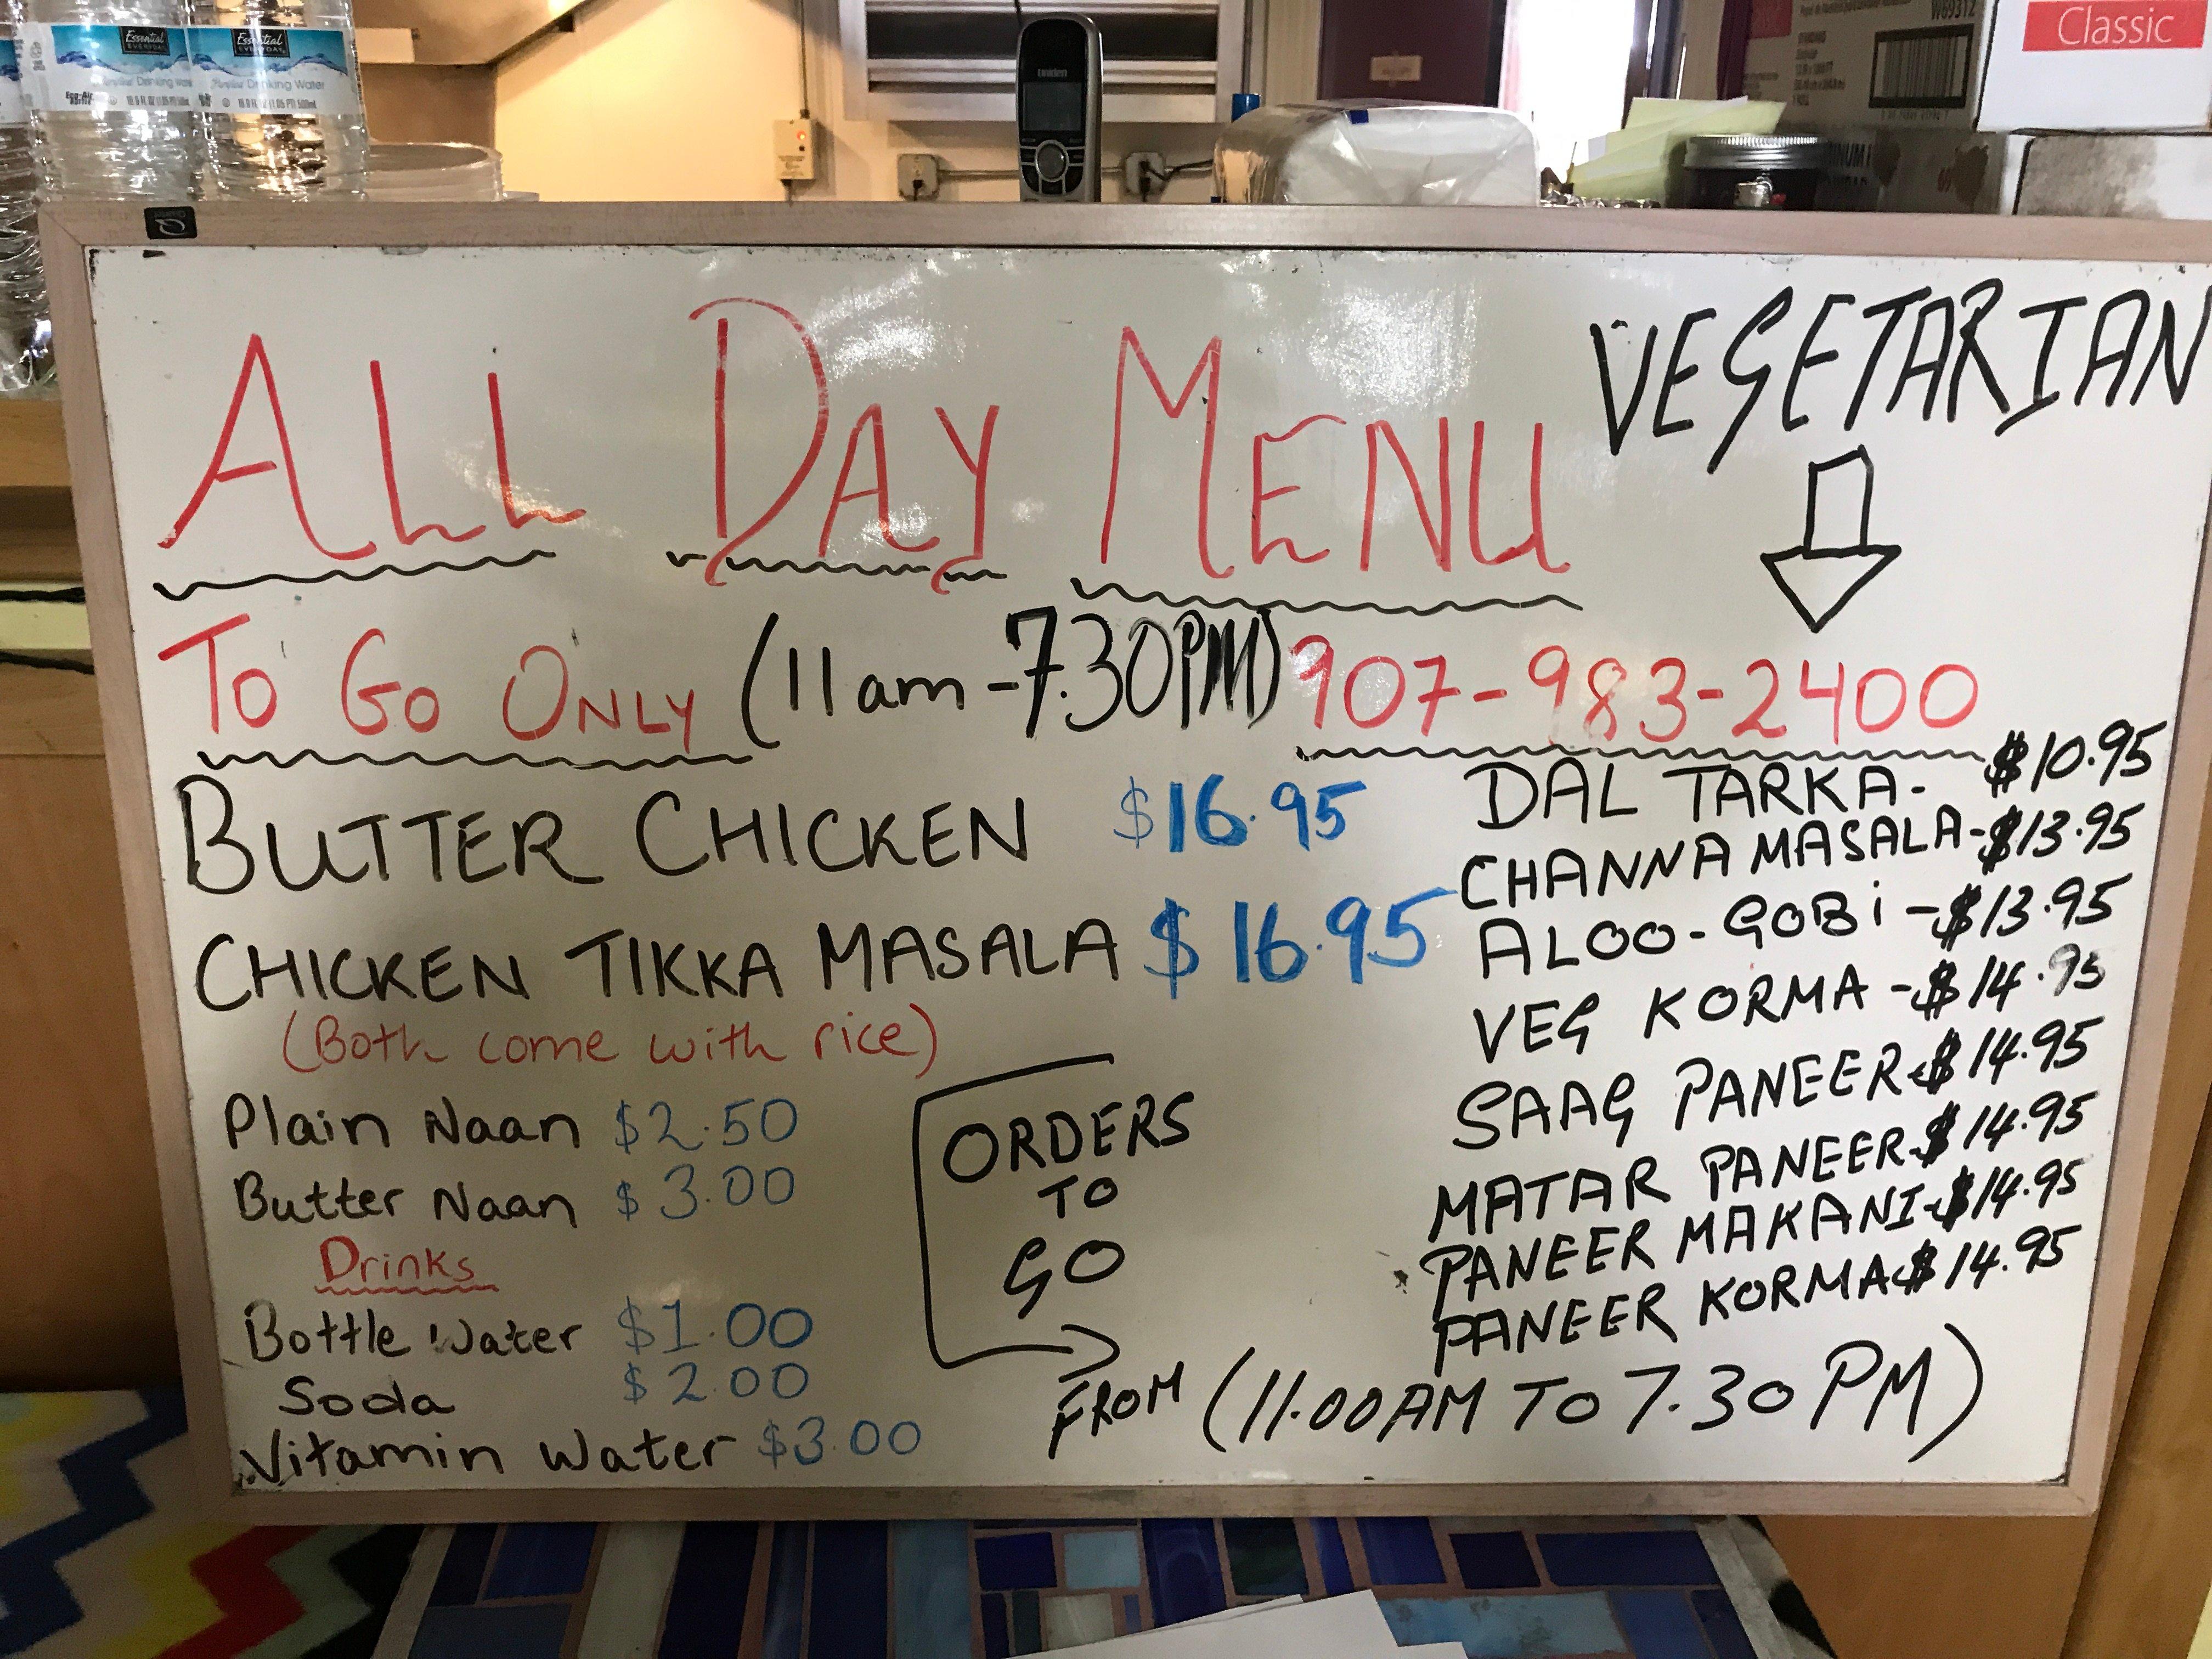 Essential
EVERYDAY
Drinking Water
16.9 FL OZ (1.05 PT) 500mL
Essential
EVERYDAY
Purified Drinking Water
16.9 FL OZ (1.05 PT) 500mL
uniden
W69312
Classic
ALL DAY MENU
VEGETARIAN
TO GO ONLY (11am-7.30PM) 907-983-2400
BUTTER CHICKEN $16.95
CHICKEN TIKKA MASALA $16.95
(Both come with rice)
Plain Naan $2.50
Butter Naan $3.00
Drinks
Bottle Water $1.00
Soda $2.00
Vitamin Water $3.00
ORDERS
TO
GO
DAL TARKA- $10.95
CHANNA MASALA-$13.95
ALOO-GOBi-$13.95
VEG KORMA-$14.95
SAAG PANEER-$14.95
MATAR PANEER-$14.95
PANEER MAKANI-$14.95
PANEER KORMA$14.95
FROM (11.00AM TO 7.30PM)